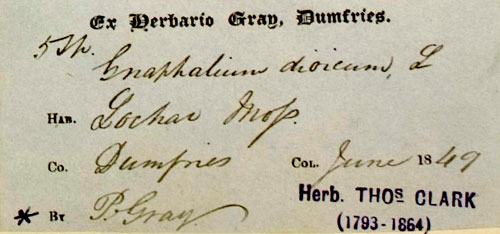 Ex Herbario Gray, Dumfries.
5 Sp.
Gnaphalium dioicum, L
Hab. Lochar Moss.
Co. Dumfries Col. June 1849
* By P. Gray.
Herb. THOS CLARK
(1793-1864)